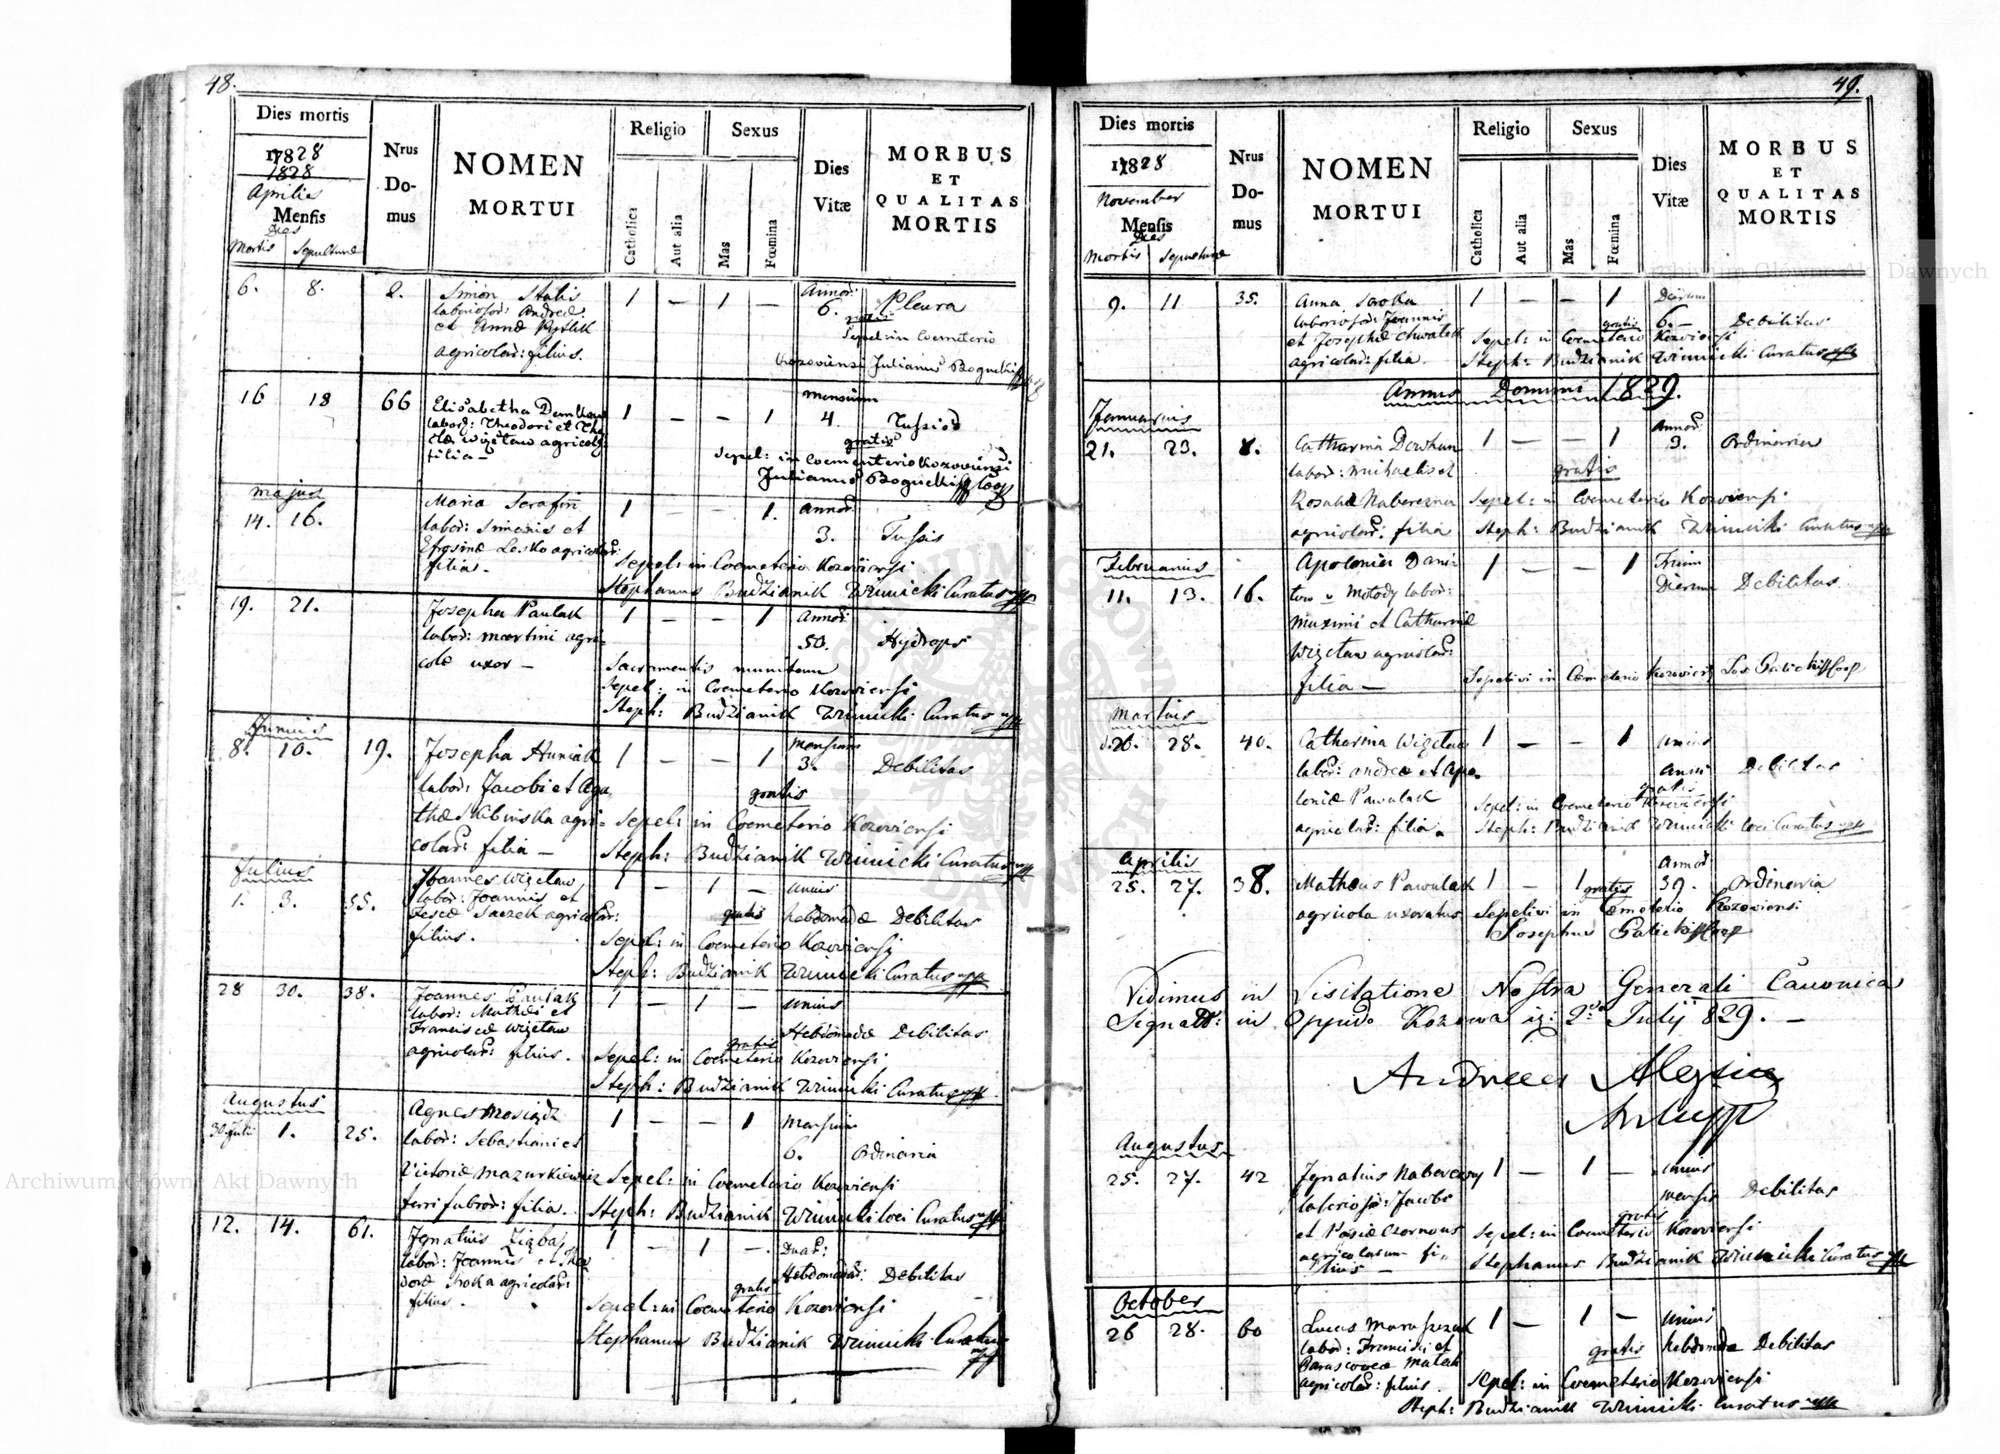 48.
Dies mortis
Nrus Do-mus
NOMEN MORTUI
Religio
Sexus
Dies Vitæ
MORBUS ET QUALITAS MORTIS
1828
1828
Aprilis
Mensis
Dies
Mortis
Sepulturæ
Catholica
Aut alia
Mas
Fœmina
6. 8. 2. Simon
1 — 1 —
6. Pleura
agricolar: filius.
Sepel: in Coemeterio
16 18 66 Elisabetha
1 — — 1
mensium
4. Tussis
labor: Theodori et
agricolar:
filia —
gratis
Sepel: in Coemeterio Kozoviensi
Majus
14. 16. Maria Serafin
1 — — 1.
Annor:
3. Tussis
labor: Simonis et
Efrosinæ Lesko agricolar:
filia.
Sepel: in Coemeterio Kozoviensi
Stephanus Budzianik Winnicki Curatus
19. 21. Josepha Paulak
1 — — 1
Annor:
50. Hydrops
labor: Martini agri-
colæ uxor —
Sacramentis munitam
Sepel: in Coemeterio Kozoviensi
Steph: Budzianik Winnicki Curatus
Junius
8. 10. 19. Josepha Huniak
1 — — 1
Mensium
3. Debilitas
labor: Jacobi et Aga-
thæ Skibinska agri-
colar: filia —
gratis
Sepel: in Coemeterio Kozoviensi
Steph: Budzianik Winnicki Curatus
Julius
1. 3. 55. Joannes Wizetaw
1 — 1 —
labor: Joannis et
agricolar:
filius.
gratis
hebdomadæ Debilitas
Sepel: in Coemeterio Kozoviensi
Steph: Budzianik Winnicki Curatus
28 30. 38. Joannes Paulak
1 — 1 —
unius
Hebdomadæ Debilitas
labor: Mathæi et
Franciscæ Wizetaw
agricolar: filius.
gratis
Sepel: in Coemeterio Kozoviensi
Steph: Budzianik Winnicki Curatus
Augustus
30 Juli 1. 25. Agnes
1 — — 1
Mensium
6. Ordinaria
labor: Sebastiani et
Victoriæ Mazurkiewicz
filia.
Sepel: in Coemeterio Kozoviensi
Steph: Budzianik Winnicki loci Curatus
12. 14. 61. Ignatius
1 — 1 —
Duar:
Hebdomadar: Debilitas
labor: Joannis et
agricolar:
filius.
gratis
Sepel: in Coemeterio Kozoviensi
Stephanus Budzianik Winnicki Curatus
49.
Dies mortis
Nrus Do-mus
NOMEN MORTUI
Religio
Sexus
Dies Vitæ
MORBUS ET QUALITAS MORTIS
1828
November
Mensis
Dies
Mortis
Sepulturæ
Catholica
Aut alia
Mas
Fœmina
9. 11 35. Anna Soroka
1 — — 1
Dierum
6. — Debilitas
laboriosor: Joannis
et Josephæ Chwalek
agricolar: filia.
gratis
Sepel: in Coemeterio Kozoviensi
Steph: Budzianik Winnicki Curatus
Annus Domini 1829.
Januarius
21. 23. Catharina
1 — — 1
Annor:
3. Ordinaria
labor: Michaelis et
Rosaliæ
agricolar: filia
gratis
Sepel: in Coemeterio Kozoviensi
Steph: Budzianik Winnicki Curatus
Februarius
11. 13. 16. Apolonia
1 — — 1
Trium
Dierum Debilitas
labor:
Maximi et Catharinæ
Wizetaw agricolar:
filia —
Sepelivi in Coemeterio
Martius
26. 28. 40. Catharina Wizetaw
1 — — 1
unius
Anni Debilitas
labor: Andreæ et Apo-
loniæ Pawulak
agricolar: filia.
gratis
Sepel: in Coemeterio Kozoviensi
Steph: Budzianik Winnicki loci Curatus
Aprilis
25. 27. 38. Matheus Pawulak
1 — 1
Annor:
39. Ordinaria
agricola uxoratus
gratis
Sepelivi in Cœmeterio Kozoviensi
Josephus
Vidimus in Visitatione Nostra Generali Canonica
Signatt: in Oppido Kozowa 2da Julij 829. —
Andreas
Augustus
25. 27. 42 Ignatius
1 — 1 —
unius
mensis Debilitas
laboriosor: Jacobi
agricolarum fi-
lius —
gratis
Sepel: in Coemeterio Kozoviensi
Stephanus Budzianik Winnicki Curatus
October
26 28. 60 Lucas
1 — 1 —
unius
hebdomadæ Debilitas
labor: Francisci et
Parascevæ
agricolar: filius.
gratis
Sepel: in Coemeterio Kozoviensi
Steph: Budzianik Winnicki Curatus
Archiwum Główne Akt Dawnych
Archiwum Główne Akt Dawnych